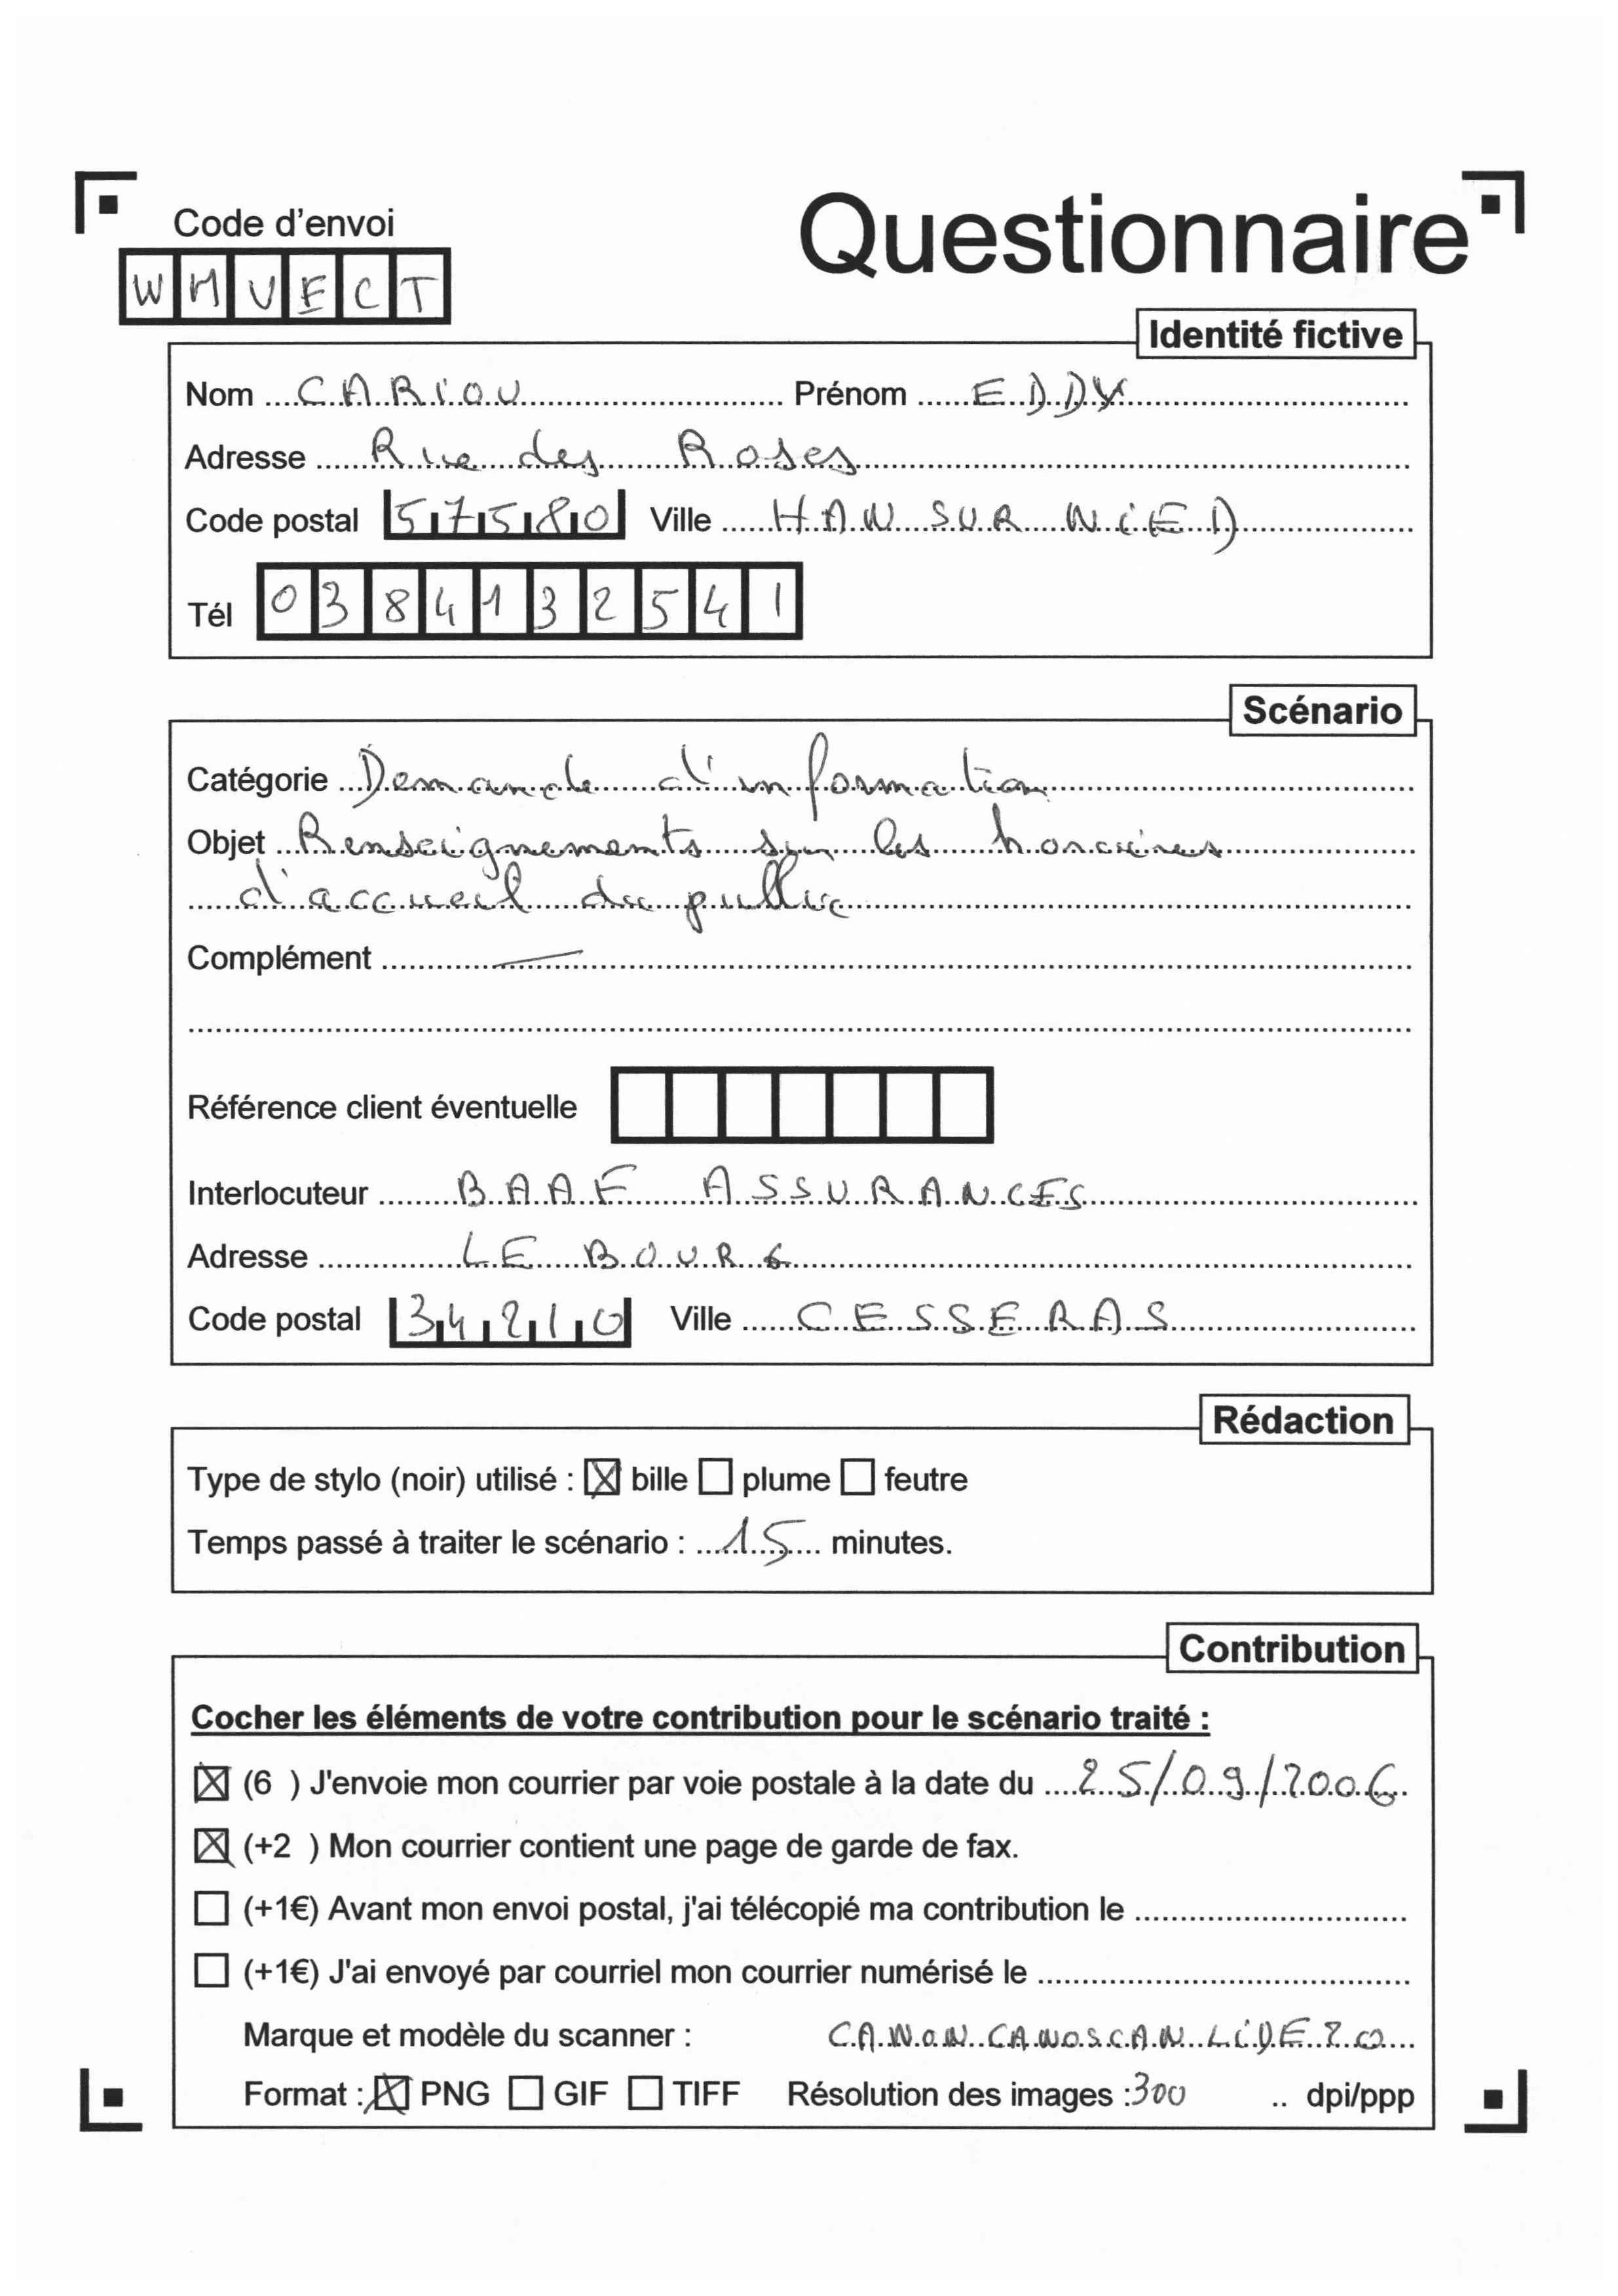 Code d'envoi
Questionnaire
WMVECT
Identité fictive
Nom CARIOU Prénom EDDY
Adresse Rue des Roses
Code postal 57580 Ville HAN SUR NIED
Tél 0384132541
Scénario
Catégorie Demande d'information
Objet Renseignements sur les horaires
d'accueil du public
Complément
Référence client éventuelle
Interlocuteur BAAF ASSURANCES
Adresse LE BOURG
Code postal 34210 Ville CESSERAS
Rédaction
Type de stylo (noir) utilisé : ☒ bille ☐ plume ☐ feutre
Temps passé à traiter le scénario : 15 minutes.
Contribution
Cocher les éléments de votre contribution pour le scénario traité :
☒ (6 ) J'envoie mon courrier par voie postale à la date du 25/09/2006
☒ (+2 ) Mon courrier contient une page de garde de fax.
☐ (+1€) Avant mon envoi postal, j'ai télécopié ma contribution le
☐ (+1€) J'ai envoyé par courriel mon courrier numérisé le
Marque et modèle du scanner : CANON CANOSCAN LiDE 20
Format : ☒ PNG ☐ GIF ☐ TIFF Résolution des images : 300 .. dpi/ppp